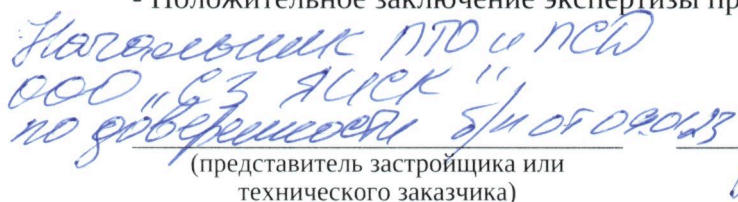 - Положительное заключение экспертизы пр
Начальник ПТО и ПСД
ООО "СЗ ЯИСК"
по доверенности б/н от 09.01.23
(представитель застройщика или
технического заказчика)